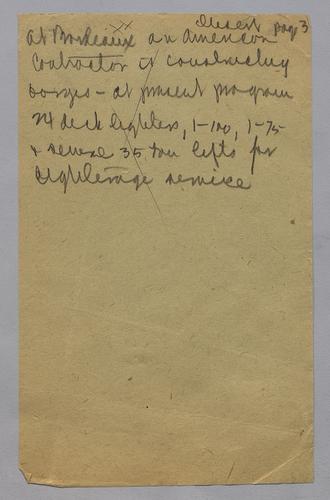 Insert page 3
at Bordeaux an American
Contractor is constructing
barges - at present program
24 deck lighters, 1-100, 1-75
+ several 35 ton lifts for
lighterage service